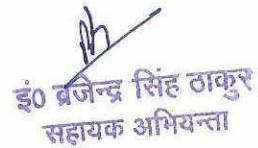 इं0 ब्रजेन्द्र सिंह ठाकुर
सहायक अभियन्ता